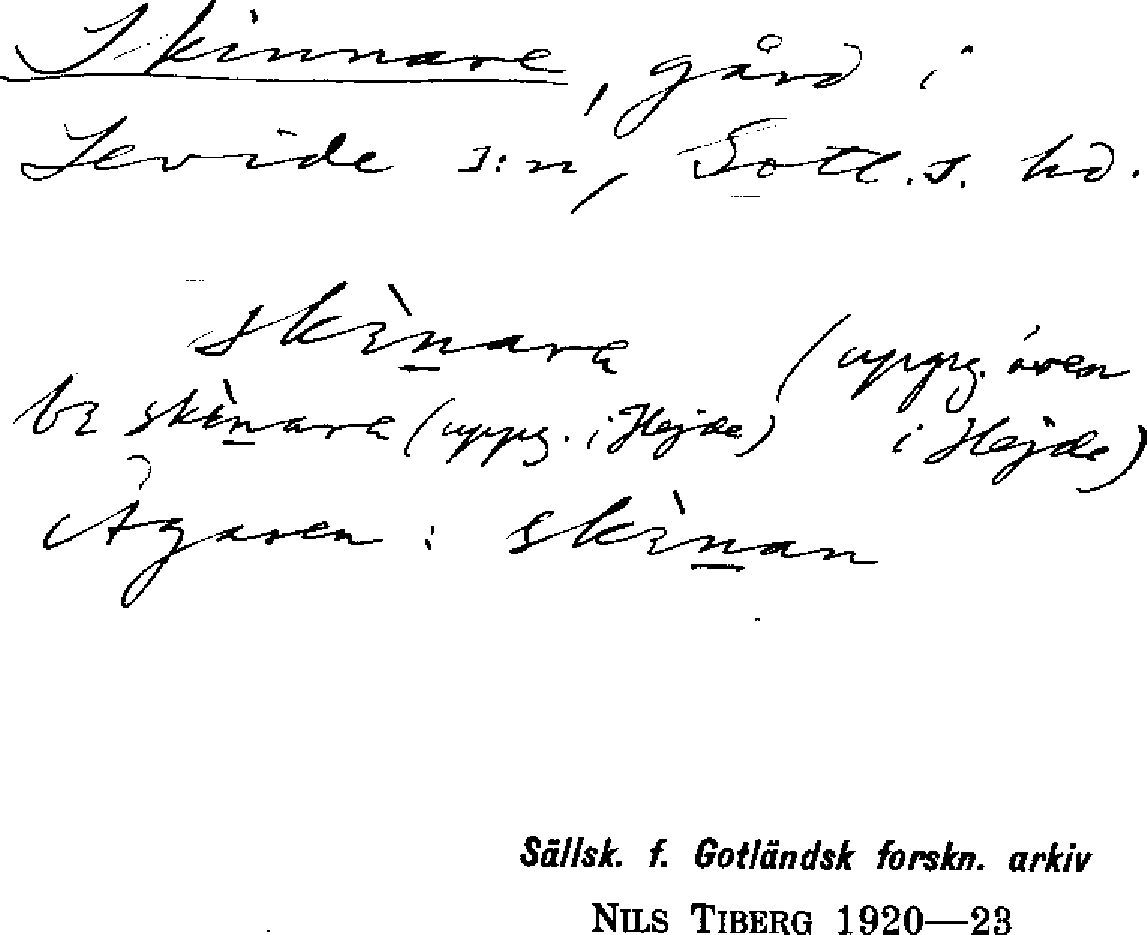 Skinnare, gård i
Levide s:n, Gotl. s. hd.
skìn̲ara (uppg. även
bɛ skìn̲ara (uppg. i Hejde) i Hejde)
Ägaren : skìn̲an
Sällsk. f. Gotländsk forskn. arkiv
NILS TIBERG 1920—23